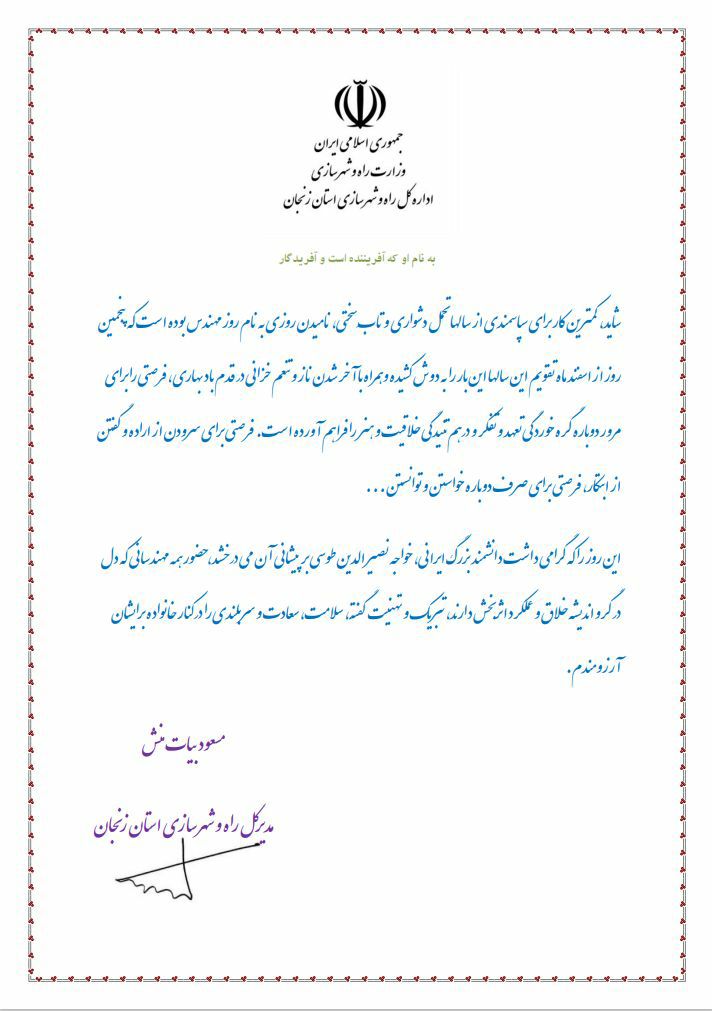 جمهوری اسلامی ایران
وزارت راه و شهرسازی
اداره کل راه و شهرسازی استان زنجان
به نام او که آفریننده است و آفریدگار
شاید، کمترین کار برای سپاسمندی از سالها تحمل دشواری و تاب سختی، نامیدن روزی به نام روز مهندس بوده است که پنجمین
روز از اسفند ماه تقویم این سالها این بار را به دوش کشیده و همراه با آخر شدن ناز و تنعم خزانی در قدم باد بهاری، فرصتی را برای
مرور دوباره گره خوردگی تعهد و تفکر و در هم تنیدگی خلاقیت و هنر را فراهم آورده است. فرصتی برای سرودن از اراده و گفتن
از ابتکار، فرصتی برای صرف دوباره خواستن و توانستن ...
این روز را که گرامی داشت دانشمند بزرگ ایرانی، خواجه نصیرالدین طوسی بر پیشانی آن می درخشد، حضور همه مهندسانی که دل
در گرو اندیشه خلاق و عملکرد اثربخش دارند، تبریک و تهنیت گفته، سلامت، سعادت و سربلندی را در کنار خانواده برایشان
آرزومندم.
مسعود بیات منش
مدیرکل راه و شهرسازی استان زنجان